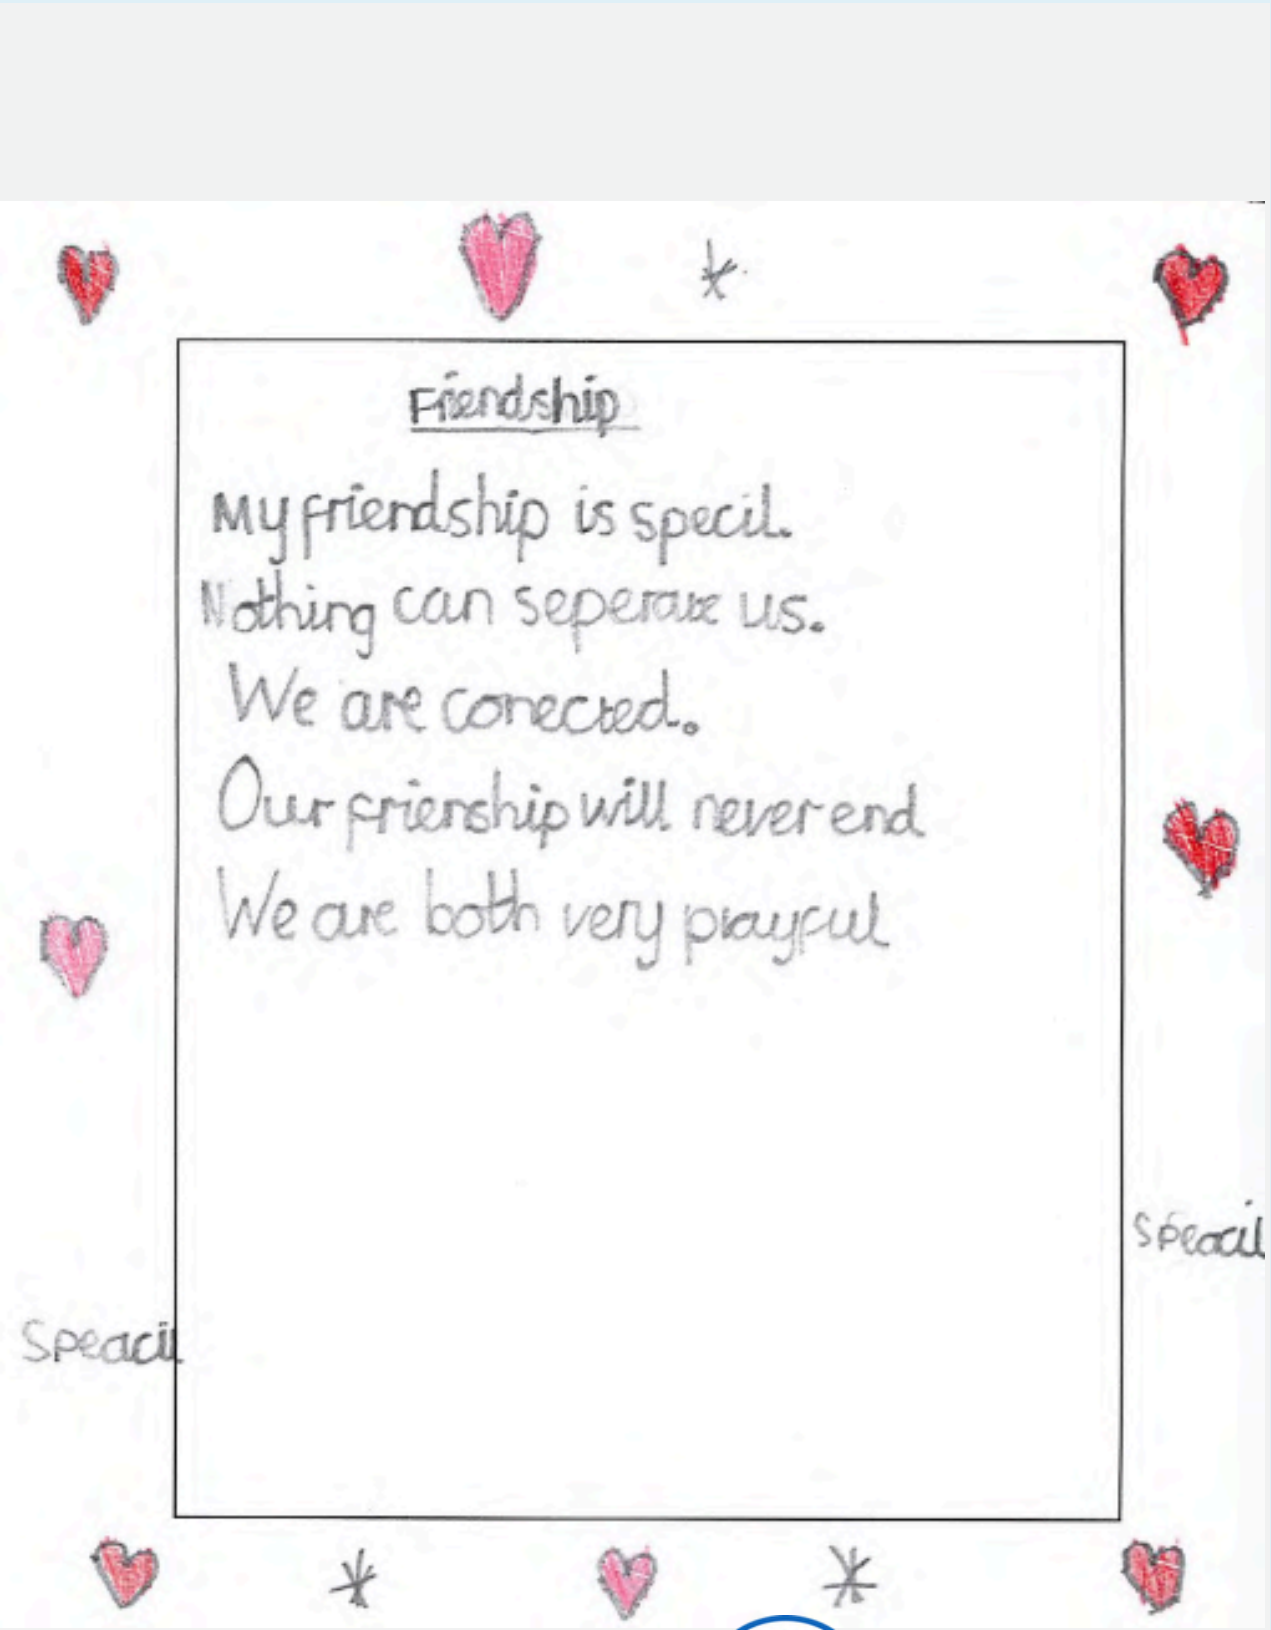 Friendship
My friendship is specil.
Nothing can seperate us.
We are conected.
Our frienship will never end
We are both very playful
Speacil
Speacil